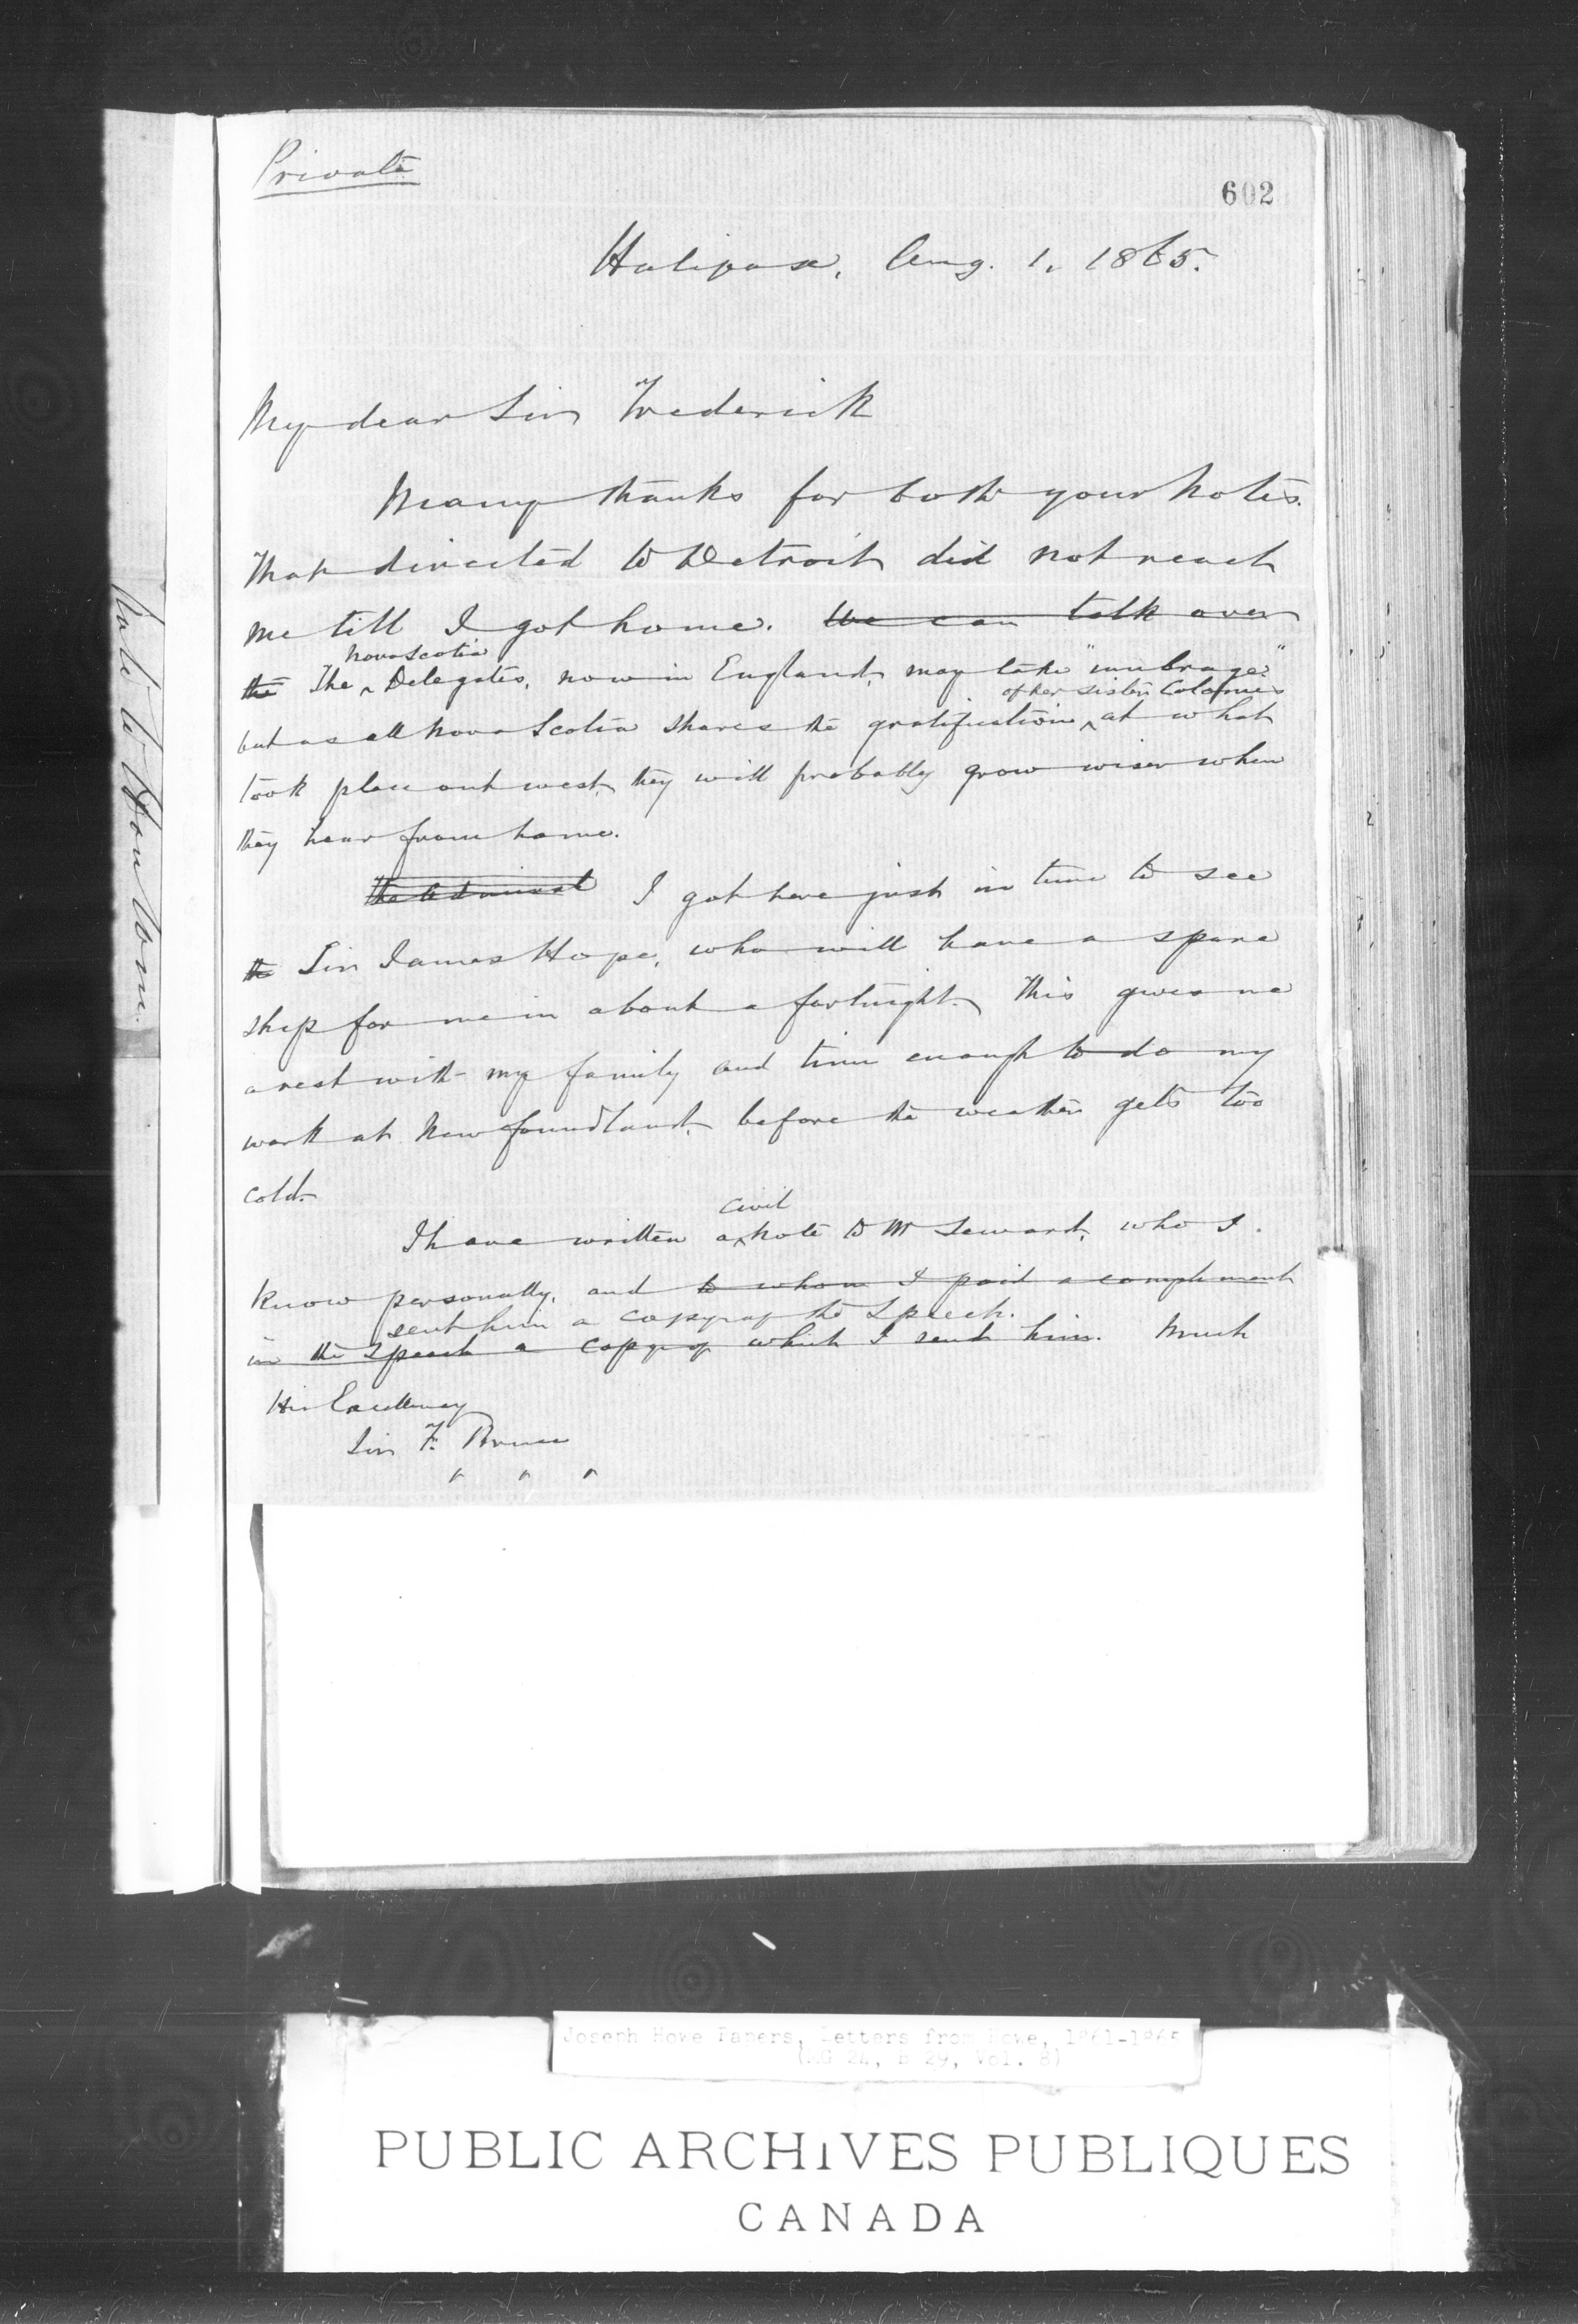 Private
602
Halifax, Aug. 1, 1865.
My dear Sir Frederick
Many thanks for both your notes.
That directed to Detroit did not reach
me till I got home. We can talk over
Nova Scotia
the The Delegates, now in England, may take "umbrage"
of her sister Colonies
but as all Nova Scotia shares the gratification at what
took place out west, they will probably grow wiser when
they hear from home.
the Admiral I got here just in time to see
the Sir James Hope, who will have a spare
ship for me in about a fortnight. This gives me
a rest with my family and time enough to do my
work at Newfoundland, before the weather gets too
cold.
civil
I have written a note to Mr Seward, who I
know personally, and to whom I paid a compliment
sent him a copy of the Speech.
in the Speech a copy of which I send him. Much
His Excellency
Sir F. Bruce
" " "
Note to Hon
Joseph Howe Papers, Letters from Howe, 1861-1865
(MG 24, B 29, Vol. 8)
PUBLIC ARCHIVES PUBLIQUES
CANADA